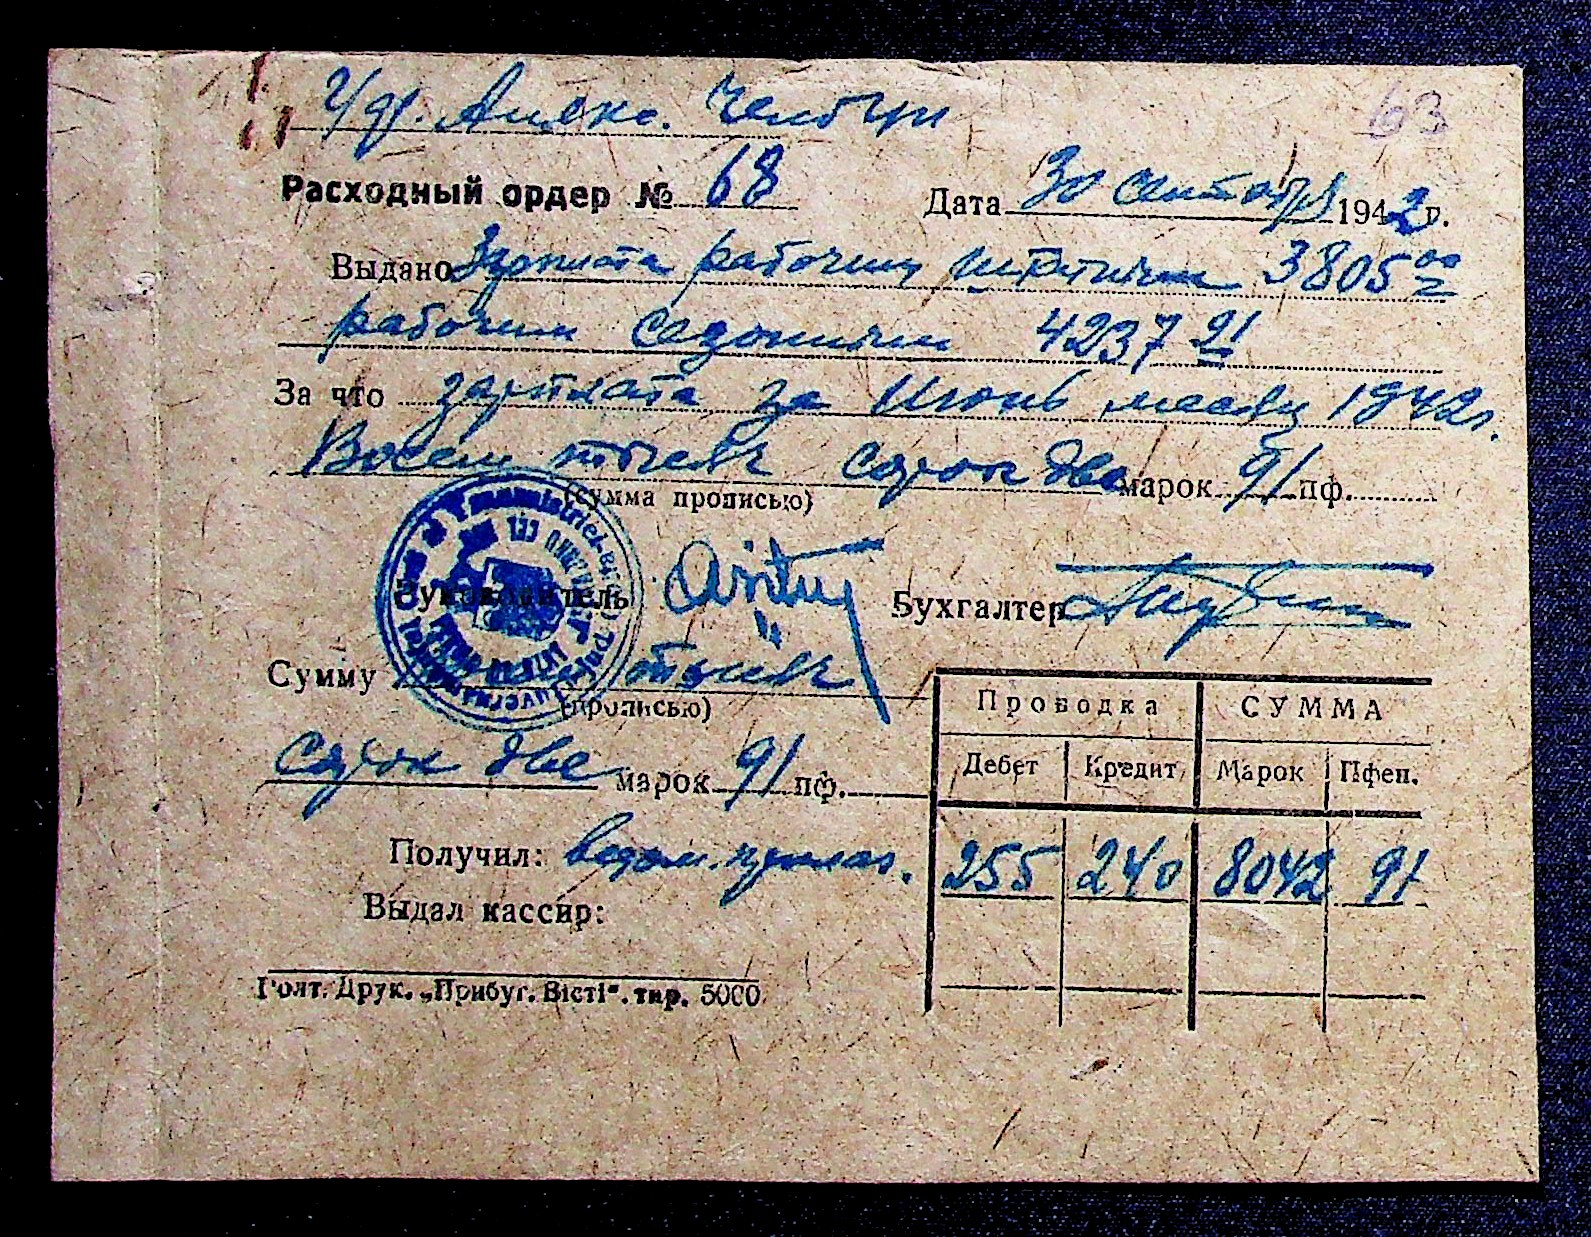 63
Расходный ордер № 68 Дата 30 сентября 1942 г.
Выдано Зарплата рабочим штатным 3805 00
рабочим сезонным 4237 91
За что зарплата за Июнь месяц 1942 г.
Восем тысяч сорок две марок 91 пф.
(сумма прописью)
Руководитель Бухгалтер
Сумму тысяч
(прописью)
сорок две марок 91 пф.
Проводка СУММА
Дебет Кредит Марок Пфен.
255 240 8042 91
Получил: ведом.
Выдал кассир:
Голт. Друк. „Прибуг. Вісті“. тир. 5000